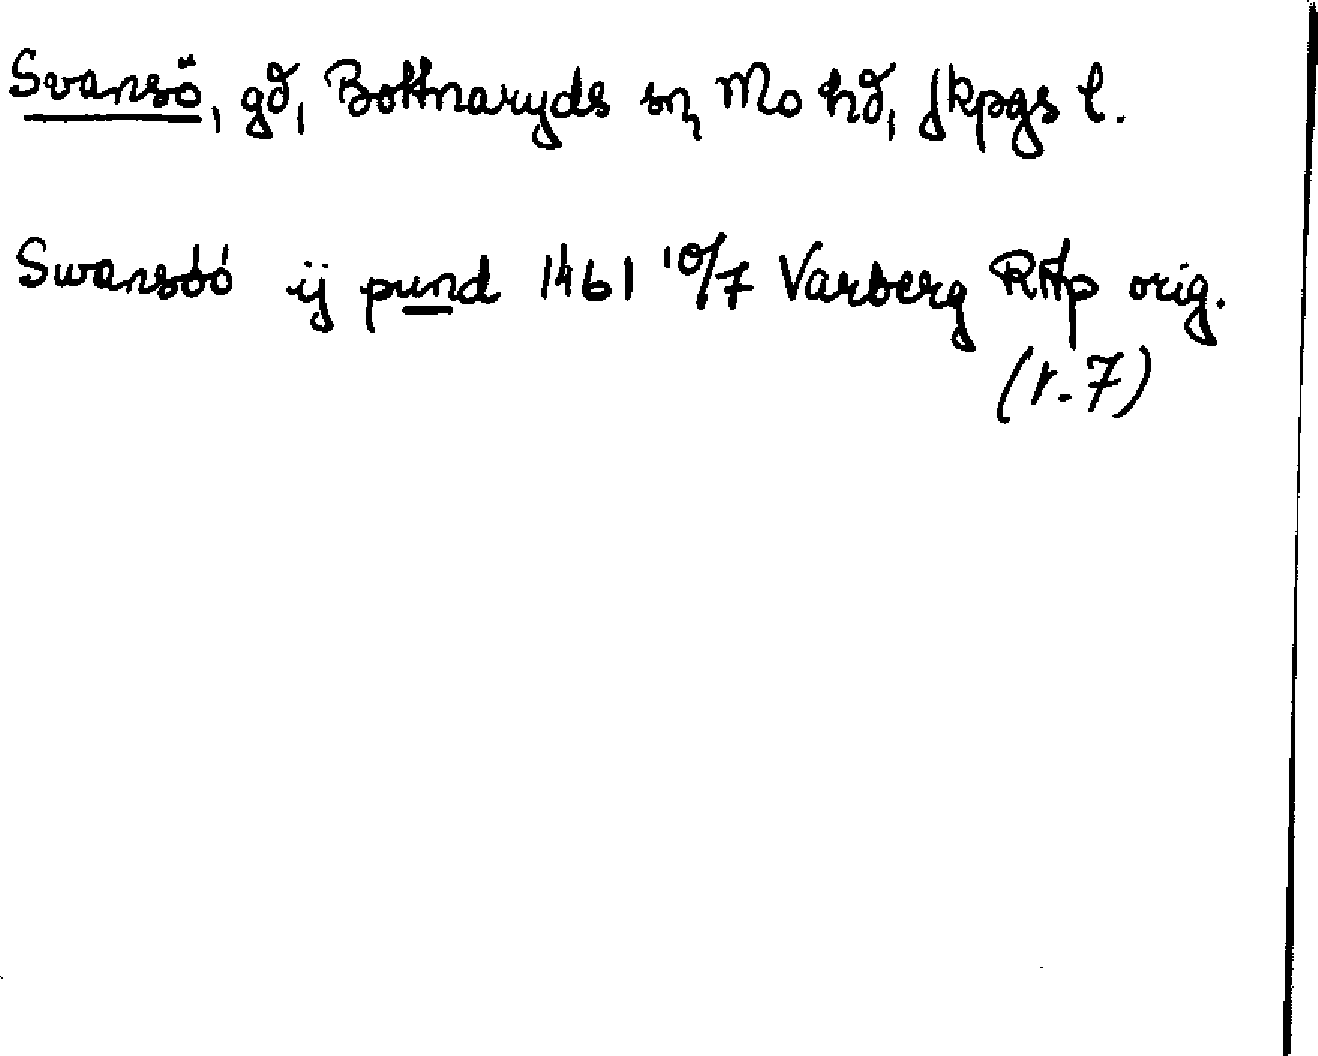 Svansö, gd, Bottnaryds sn, Mo hd, Jkpgs l.
Swansbó ij pund 1461 10/7 Varberg RAp orig.
(r. 7)